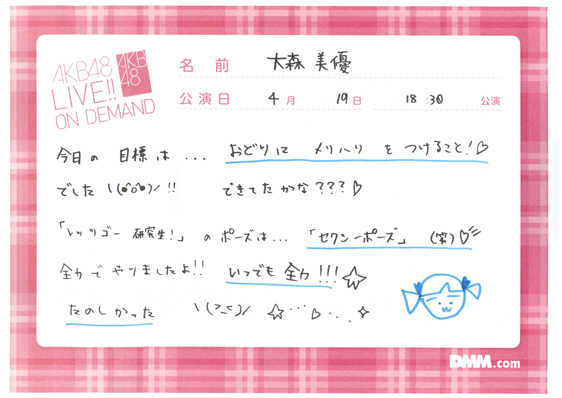 AKB48
LIVE!!
ON DEMAND
AKB
48
名前 大森 美優
公演日 4月 19日 18:30 公演
今日の 目標は... おどりに メリハリ を つけること!♡
でした \(•̀ô•́)/ !! できてたかな???♡
「レッツゴー 研究生!」 の ポーズは... 「セクシーポーズ」 (笑)♡
全力で やりましたよ!! いつでも 全力!!!☆
たのしかった \(>_<)/ ☆・・・♡・・.✧
DMM.com